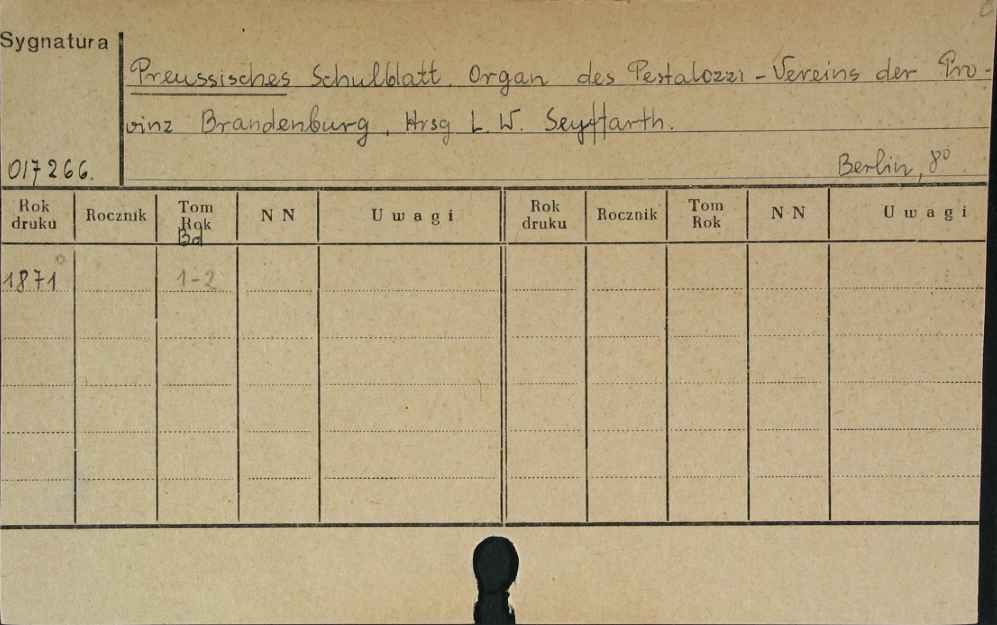 Sygnatura
Preussisches Schulblatt. Organ des Pestalozzi-Vereins der Pro-
vinz Brandenburg, Hrsg L. W. Seyffarth.
017266.
Berlin, 8°
Rok druku Rocznik Tom Rok NN Uwagi Rok druku Rocznik Tom Rok NN Uwagi
Bd
1871 1-2